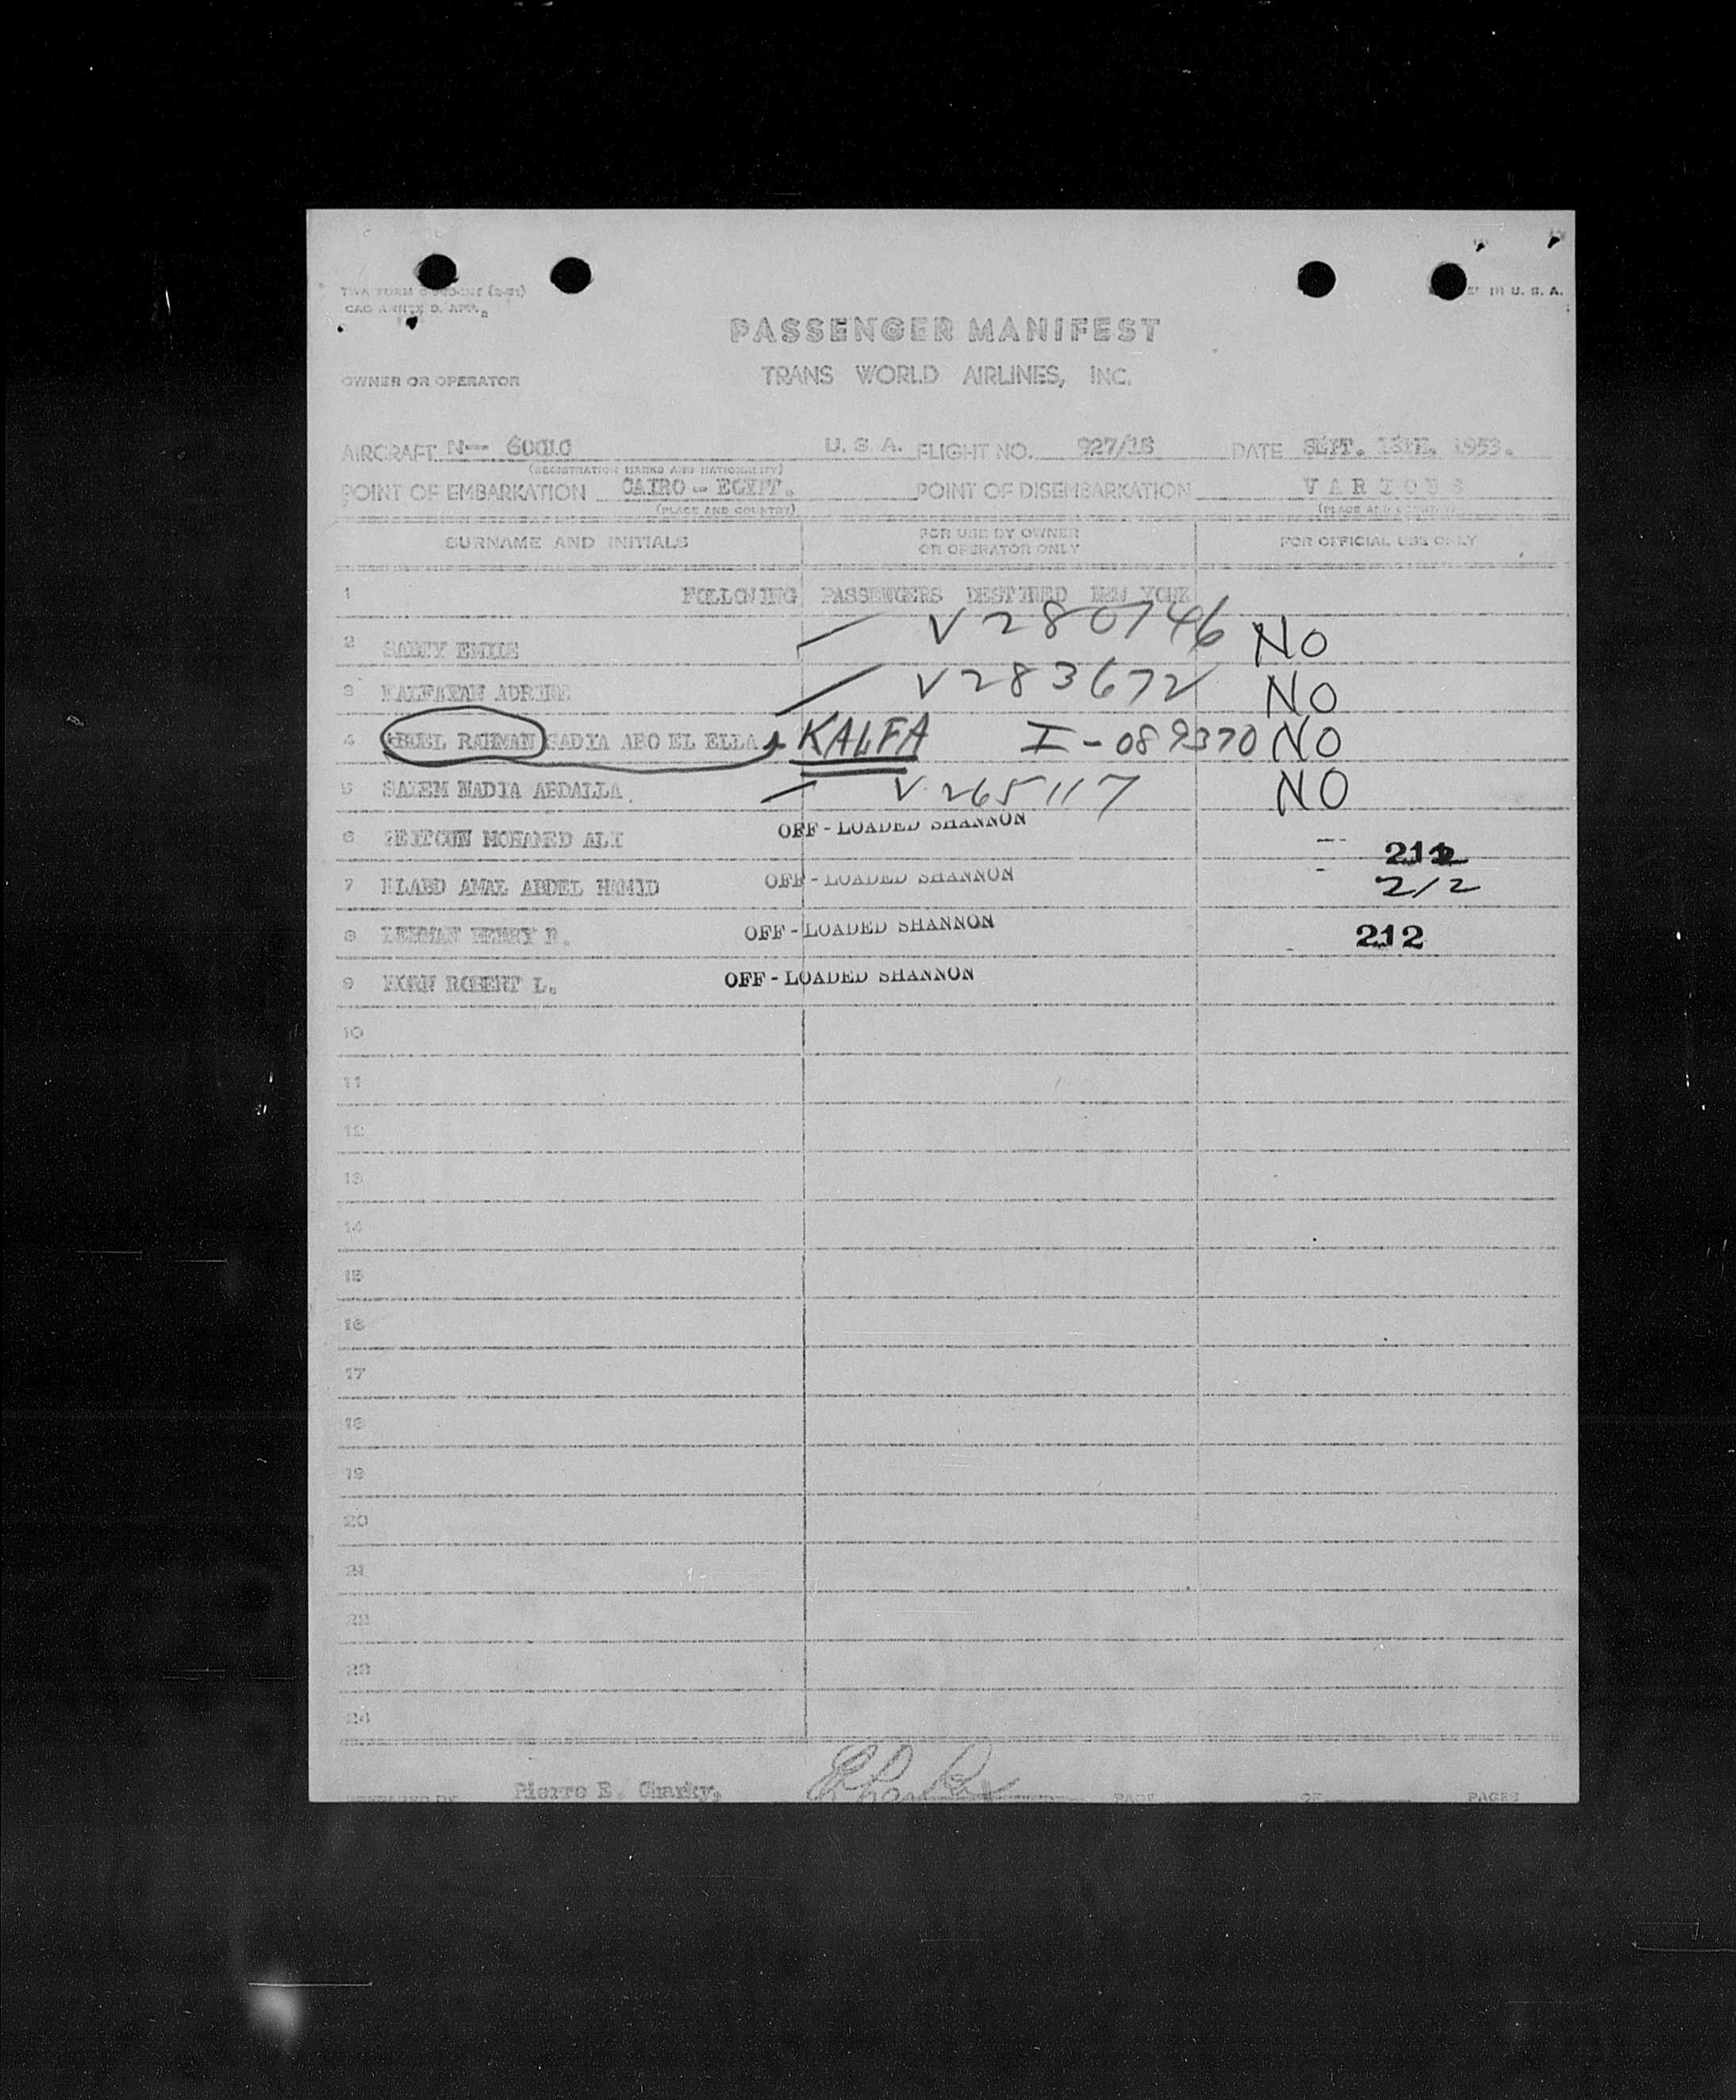 PASSENGER MANIFEST
IN U. S. A.
OWNER OR OPERATOR
TRANS WORLD AIRLINES, INC.
AIRCRAFT N- U. S. A. FLIGHT NO. 927/18 DATE SEPT. 1953.
(REGISTRATION MARKS AND NATIONALITY)
POINT OF EMBARKATION CAIRO - EGYPT. POINT OF DISEMBARKATION VARIOUS
(PLACE AND COUNTRY) (PLACE AND COUNTRY)
SURNAME AND INITIALS FOR USE BY OWNER OR OPERATOR ONLY FOR OFFICIAL USE ONLY
1 FOLLOWING PASSENGERS DESTINED NEW YORK
2 EMILE V280746 NO
3 V283672 NO
4 ABDEL RAHMAN SADIA ABO EL ELLA KALFA I-089370 NO
5 SALEM NADIA ABDALLA. V265117 NO
6 MOHAMED ALI OFF-LOADED SHANNON
7 AMAL ABDEL HAMID OFF-LOADED SHANNON 212
8 LEHMAN HENRY OFF-LOADED SHANNON 212
9 ROBERT L. OFF-LOADED SHANNON
10
11
12
13
14
15
16
17
18
19
20
21
22
23
24
PREPARED BY Pierre E. Charky, PAGE OF PAGES